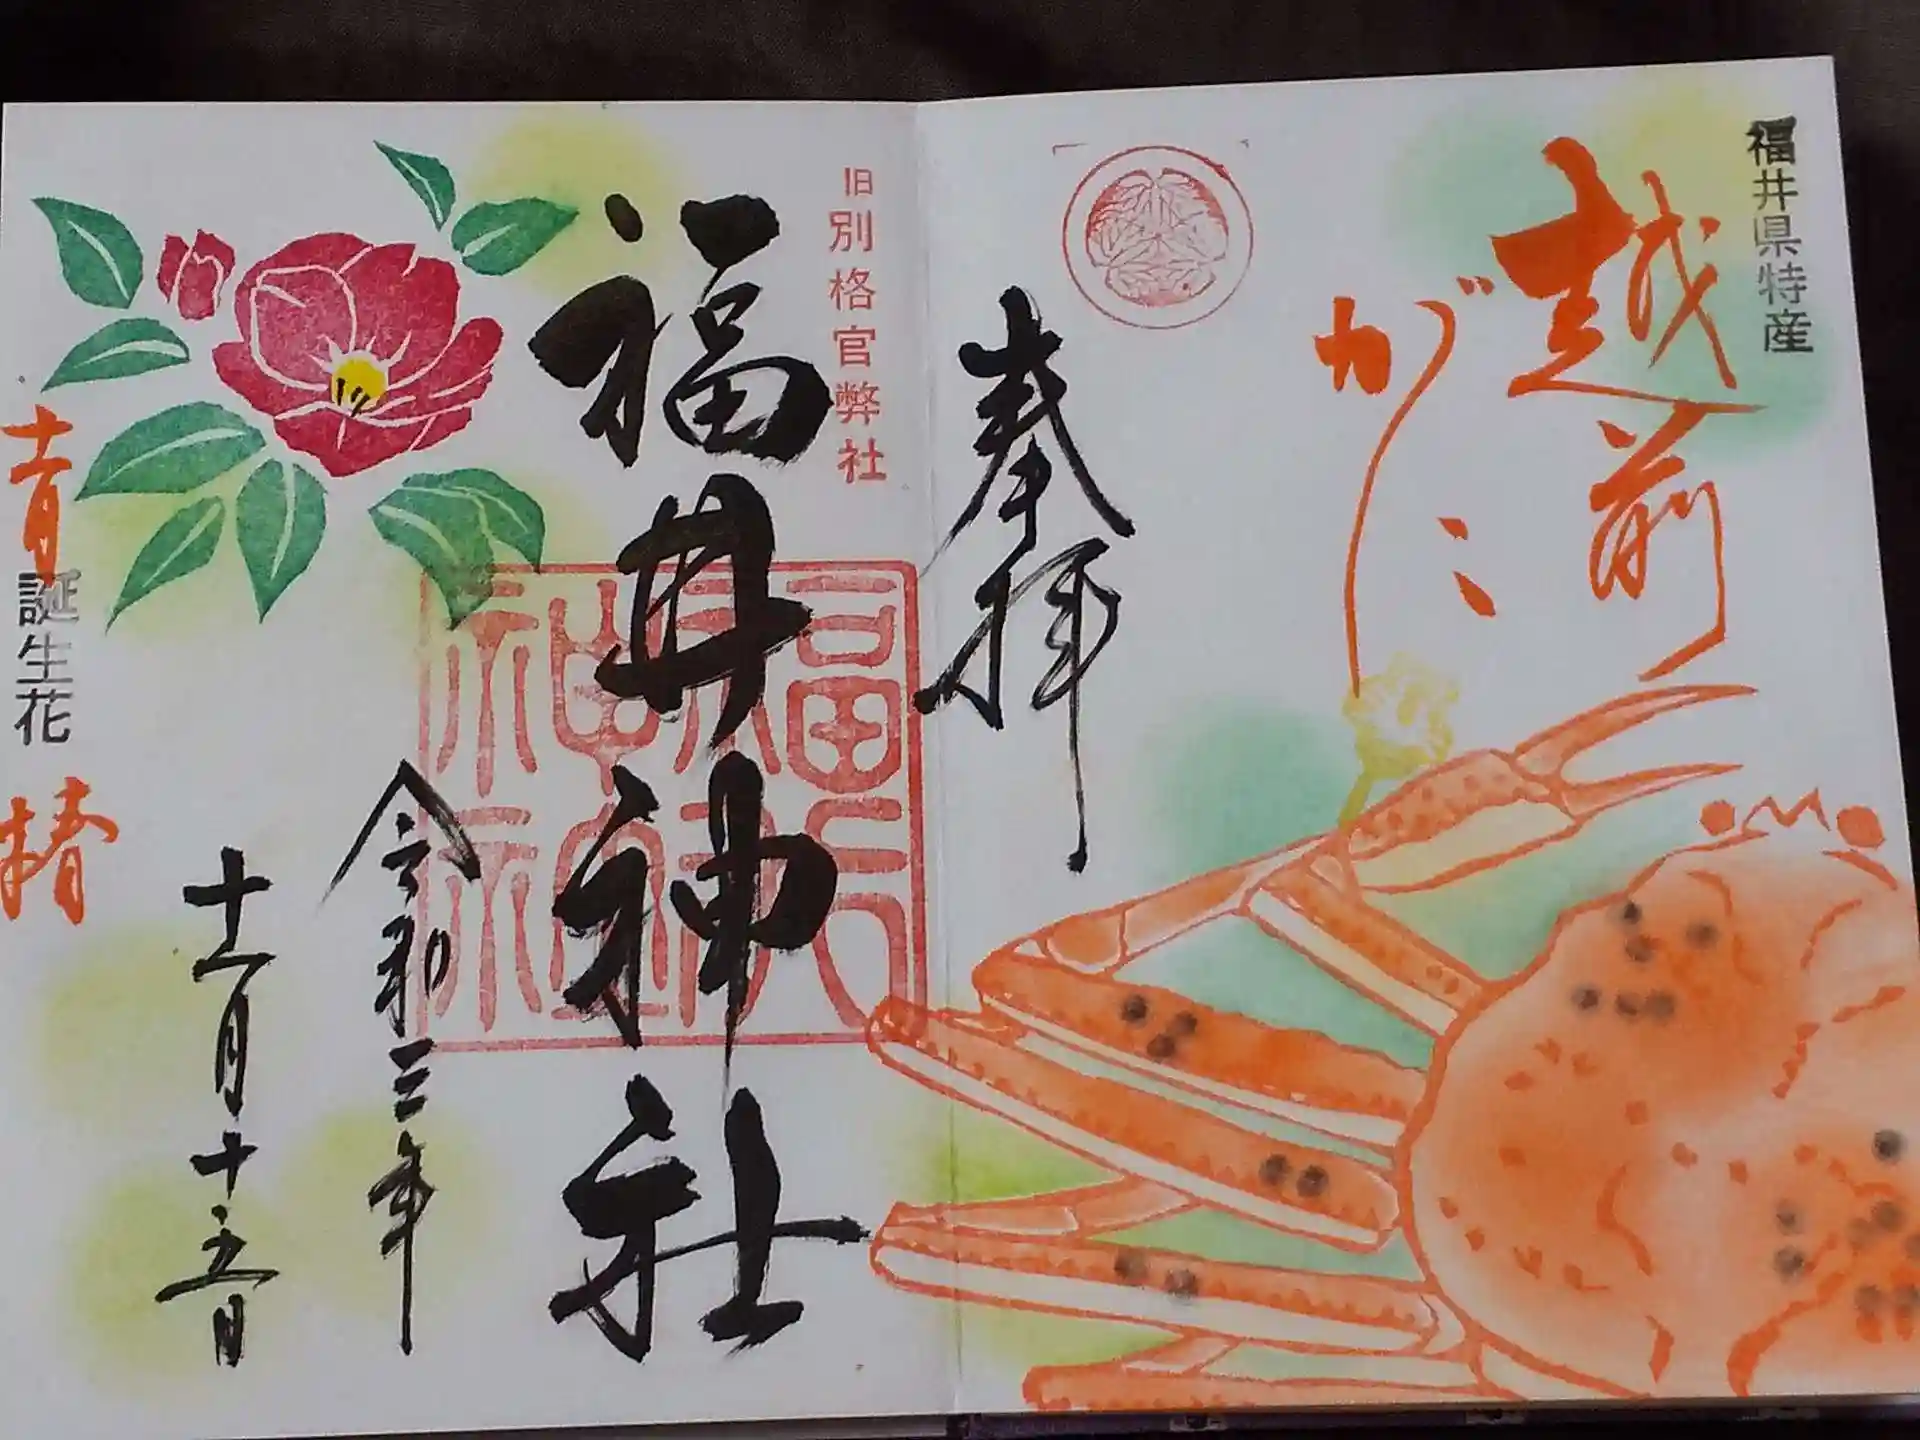 福井県特産
越前
がに
奉拝
旧別格官弊社
福井神社
令和三年
十一月十五日
十一月
誕生花
椿